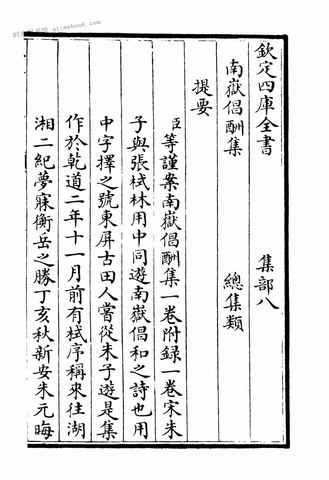 欽定四庫全書 集部八
南嶽倡酬集 總集類
提要
臣等謹案南嶽倡酬集一卷附録一卷宋朱
子與張栻林用中同遊南嶽倡和之詩也用
中字擇之號東屏古田人嘗從朱子遊是集
作於乾道二年十一月前有栻序稱來往湖
湘二紀夢寐衡岳之勝丁亥秋新安朱元晦